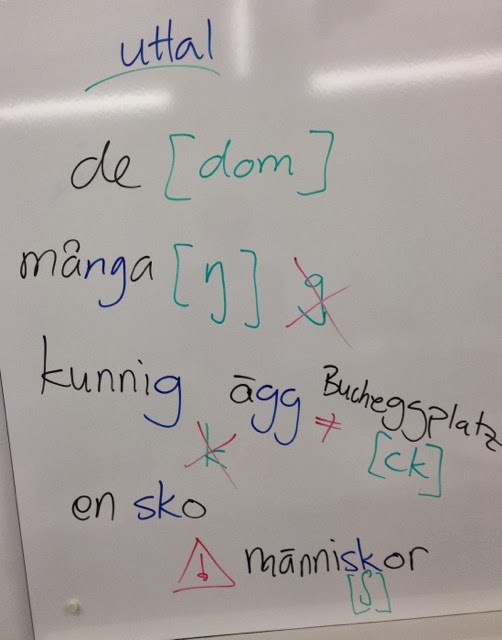 uttal
de [dom]
många [ŋ] g
kunnig ägg ≠ Bucheggplatz
k [ck]
en sko
! människor
[ʃ]